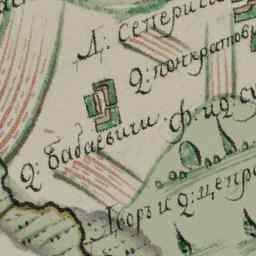 Д: сеперичи
д: понкратови
д: бабаевичи. Ф. и д: су
Дворъ и д: цепра